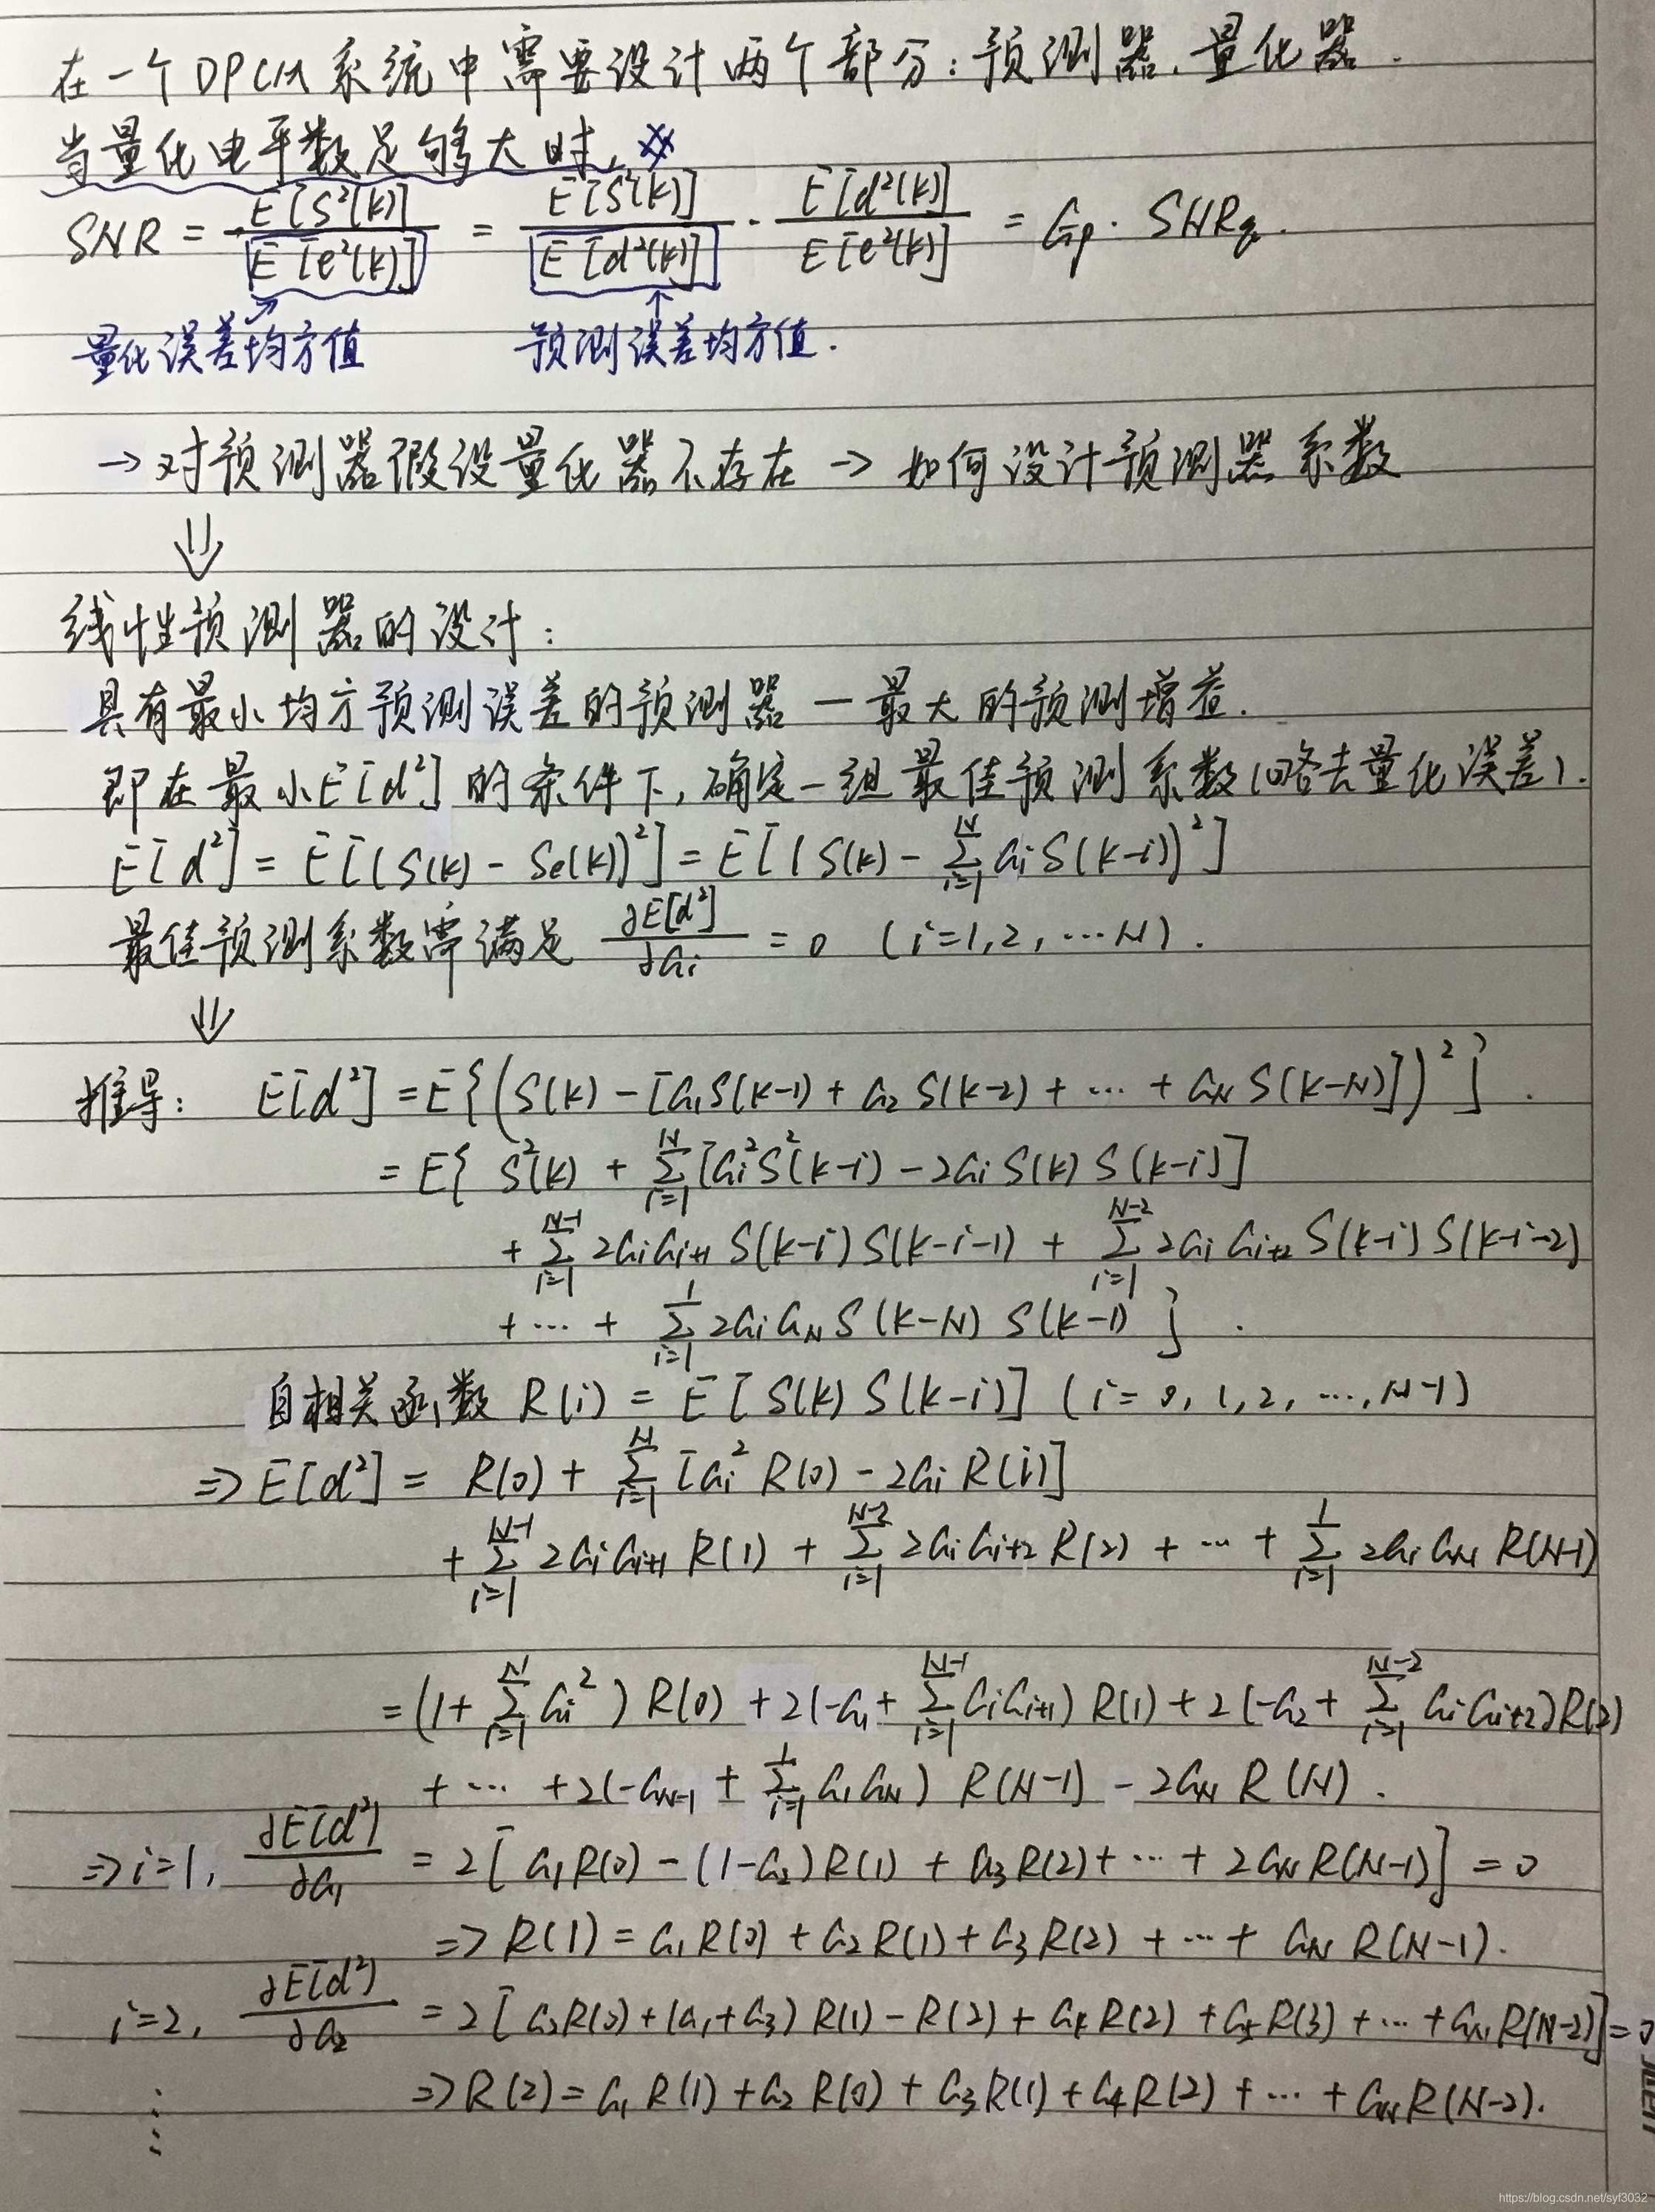 在一个DPCM系统中需要设计两个部分:预测器、量化器.
当量化电平数足够大时,
SNR = E[S²(k)] / E[e²(k)] = E[S²(k)] / E[d²(k)] · E[d²(k)] / E[e²(k)] = Gp · SNRq.
量化误差均方值 预测误差均方值.
→对预测器假设量化器不存在→如何设计预测器系数
⇓
线性预测器的设计:
具有最小均方预测误差的预测器—最大的预测增益.
即在最小E[d²]的条件下,确定一组最佳预测系数(略去量化误差).
E[d²] = E[(S(k) - Se(k))²] = E[(S(k) - Σ_{i=1}^{N} ai S(k-i))²]
最佳预测系数需满足 ∂E[d²]/∂ai = 0 (i=1,2,…N).
⇓
推导: E[d²] = E{(S(k) - [a1S(k-1) + a2 S(k-2) + … + aN S(k-N)])²}.
= E{ S²(k) + Σ_{i=1}^{N} [ai²S²(k-i) - 2ai S(k) S(k-i)]
+ Σ_{i=1}^{N-1} 2ai ai+1 S(k-i) S(k-i-1) + Σ_{i=1}^{N-2} 2ai ai+2 S(k-i) S(k-i-2)
+ … + Σ_{i=1}^{1} 2ai aN S(k-N) S(k-1) }.
自相关函数 R(i) = E[S(k) S(k-i)] (i = 0, 1, 2, …, N-1)
⇒ E[d²] = R(0) + Σ_{i=1}^{N} [ai² R(0) - 2ai R(i)]
+ Σ_{i=1}^{N-1} 2ai ai+1 R(1) + Σ_{i=1}^{N-2} 2ai ai+2 R(2) + … + Σ_{i=1}^{1} 2ai aN R(N-1)
= (1 + Σ_{i=1}^{N} ai²) R(0) + 2(-a1 + Σ_{i=1}^{N-1} ai ai+1) R(1) + 2(-a2 + Σ_{i=1}^{N-2} ai ai+2) R(2)
+ … + 2(-aN-1 + Σ_{i=1}^{1} a1 aN) R(N-1) - 2aN R(N).
⇒ i=1, ∂E[d²]/∂a1 = 2[a1R(0) - (1-a2)R(1) + a3R(2) + … + 2aN R(N-1)] = 0
⇒ R(1) = a1R(0) + a2R(1) + a3R(2) + … + aN R(N-1).
i=2, ∂E[d²]/∂a2 = 2[a2R(0) + (a1+a3) R(1) - R(2) + a4R(2) + a5R(3) + … + aN R(N-2)] = 0
⇒ R(2) = a1 R(1) + a2 R(0) + a3R(1) + a4R(2) + … + aN R(N-2).
⋮
https://blog.csdn.net/syf3032